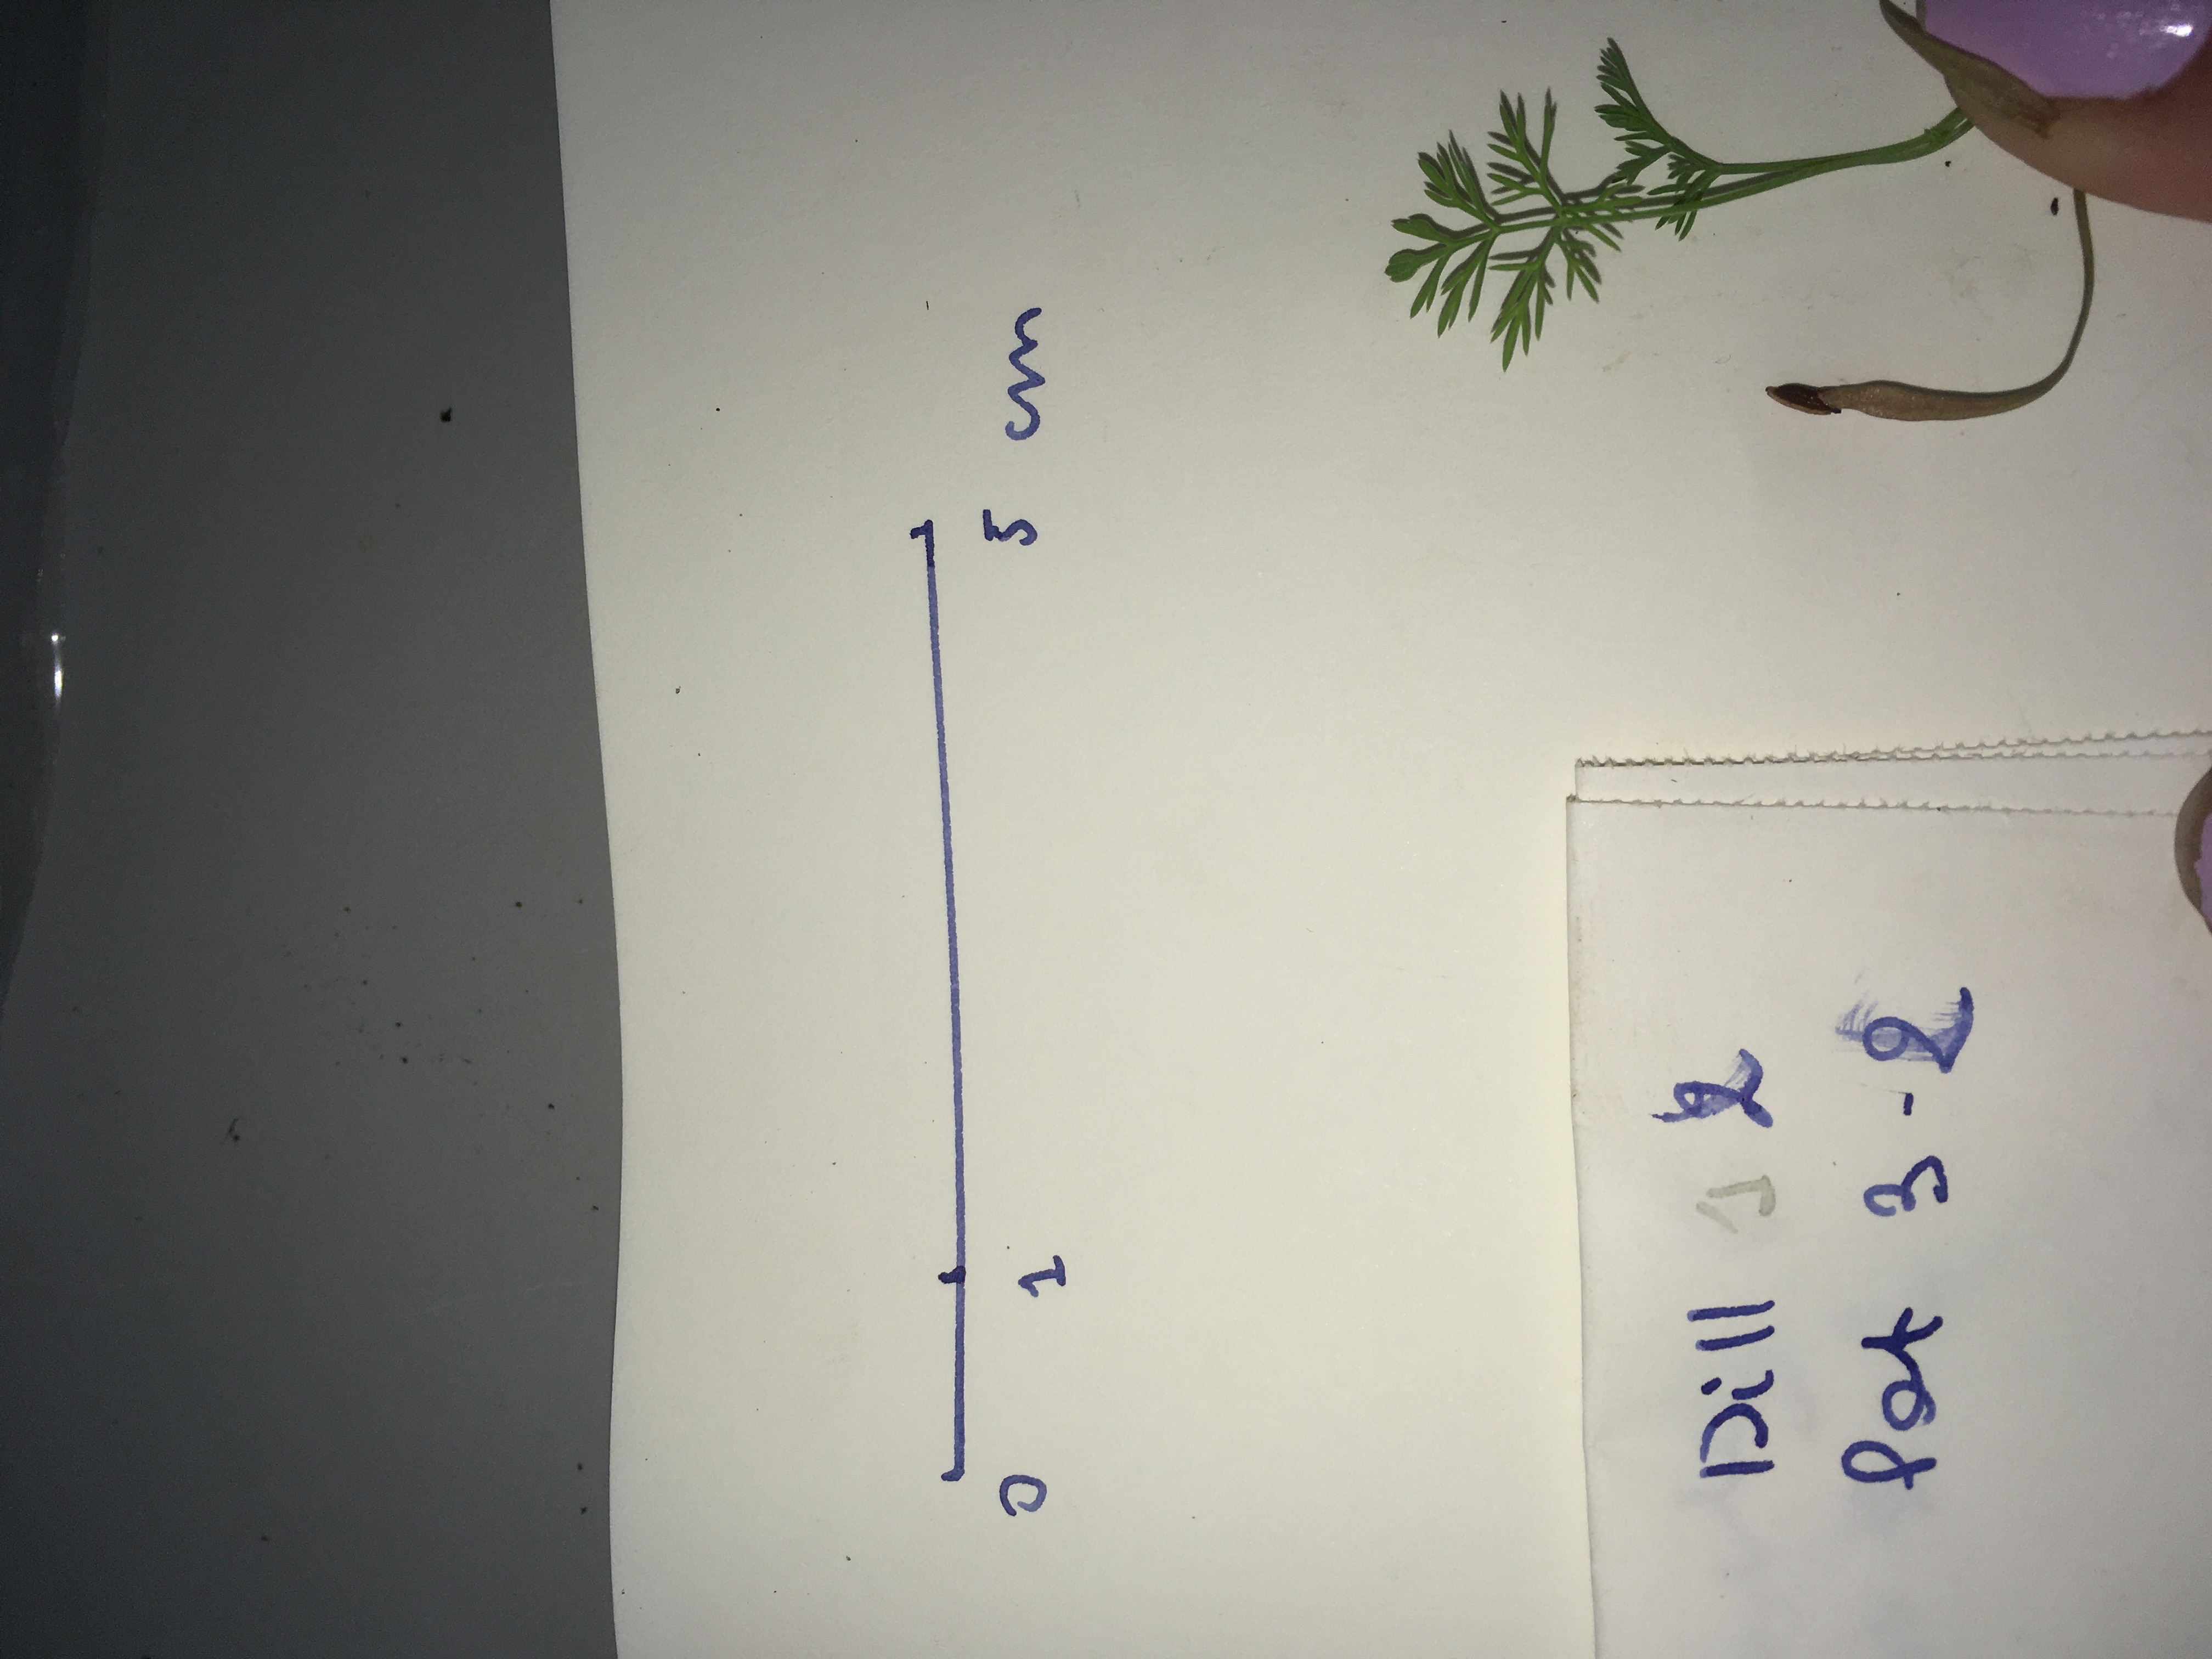 0 1 5 cm
Dill 1 2
Pot 3-2